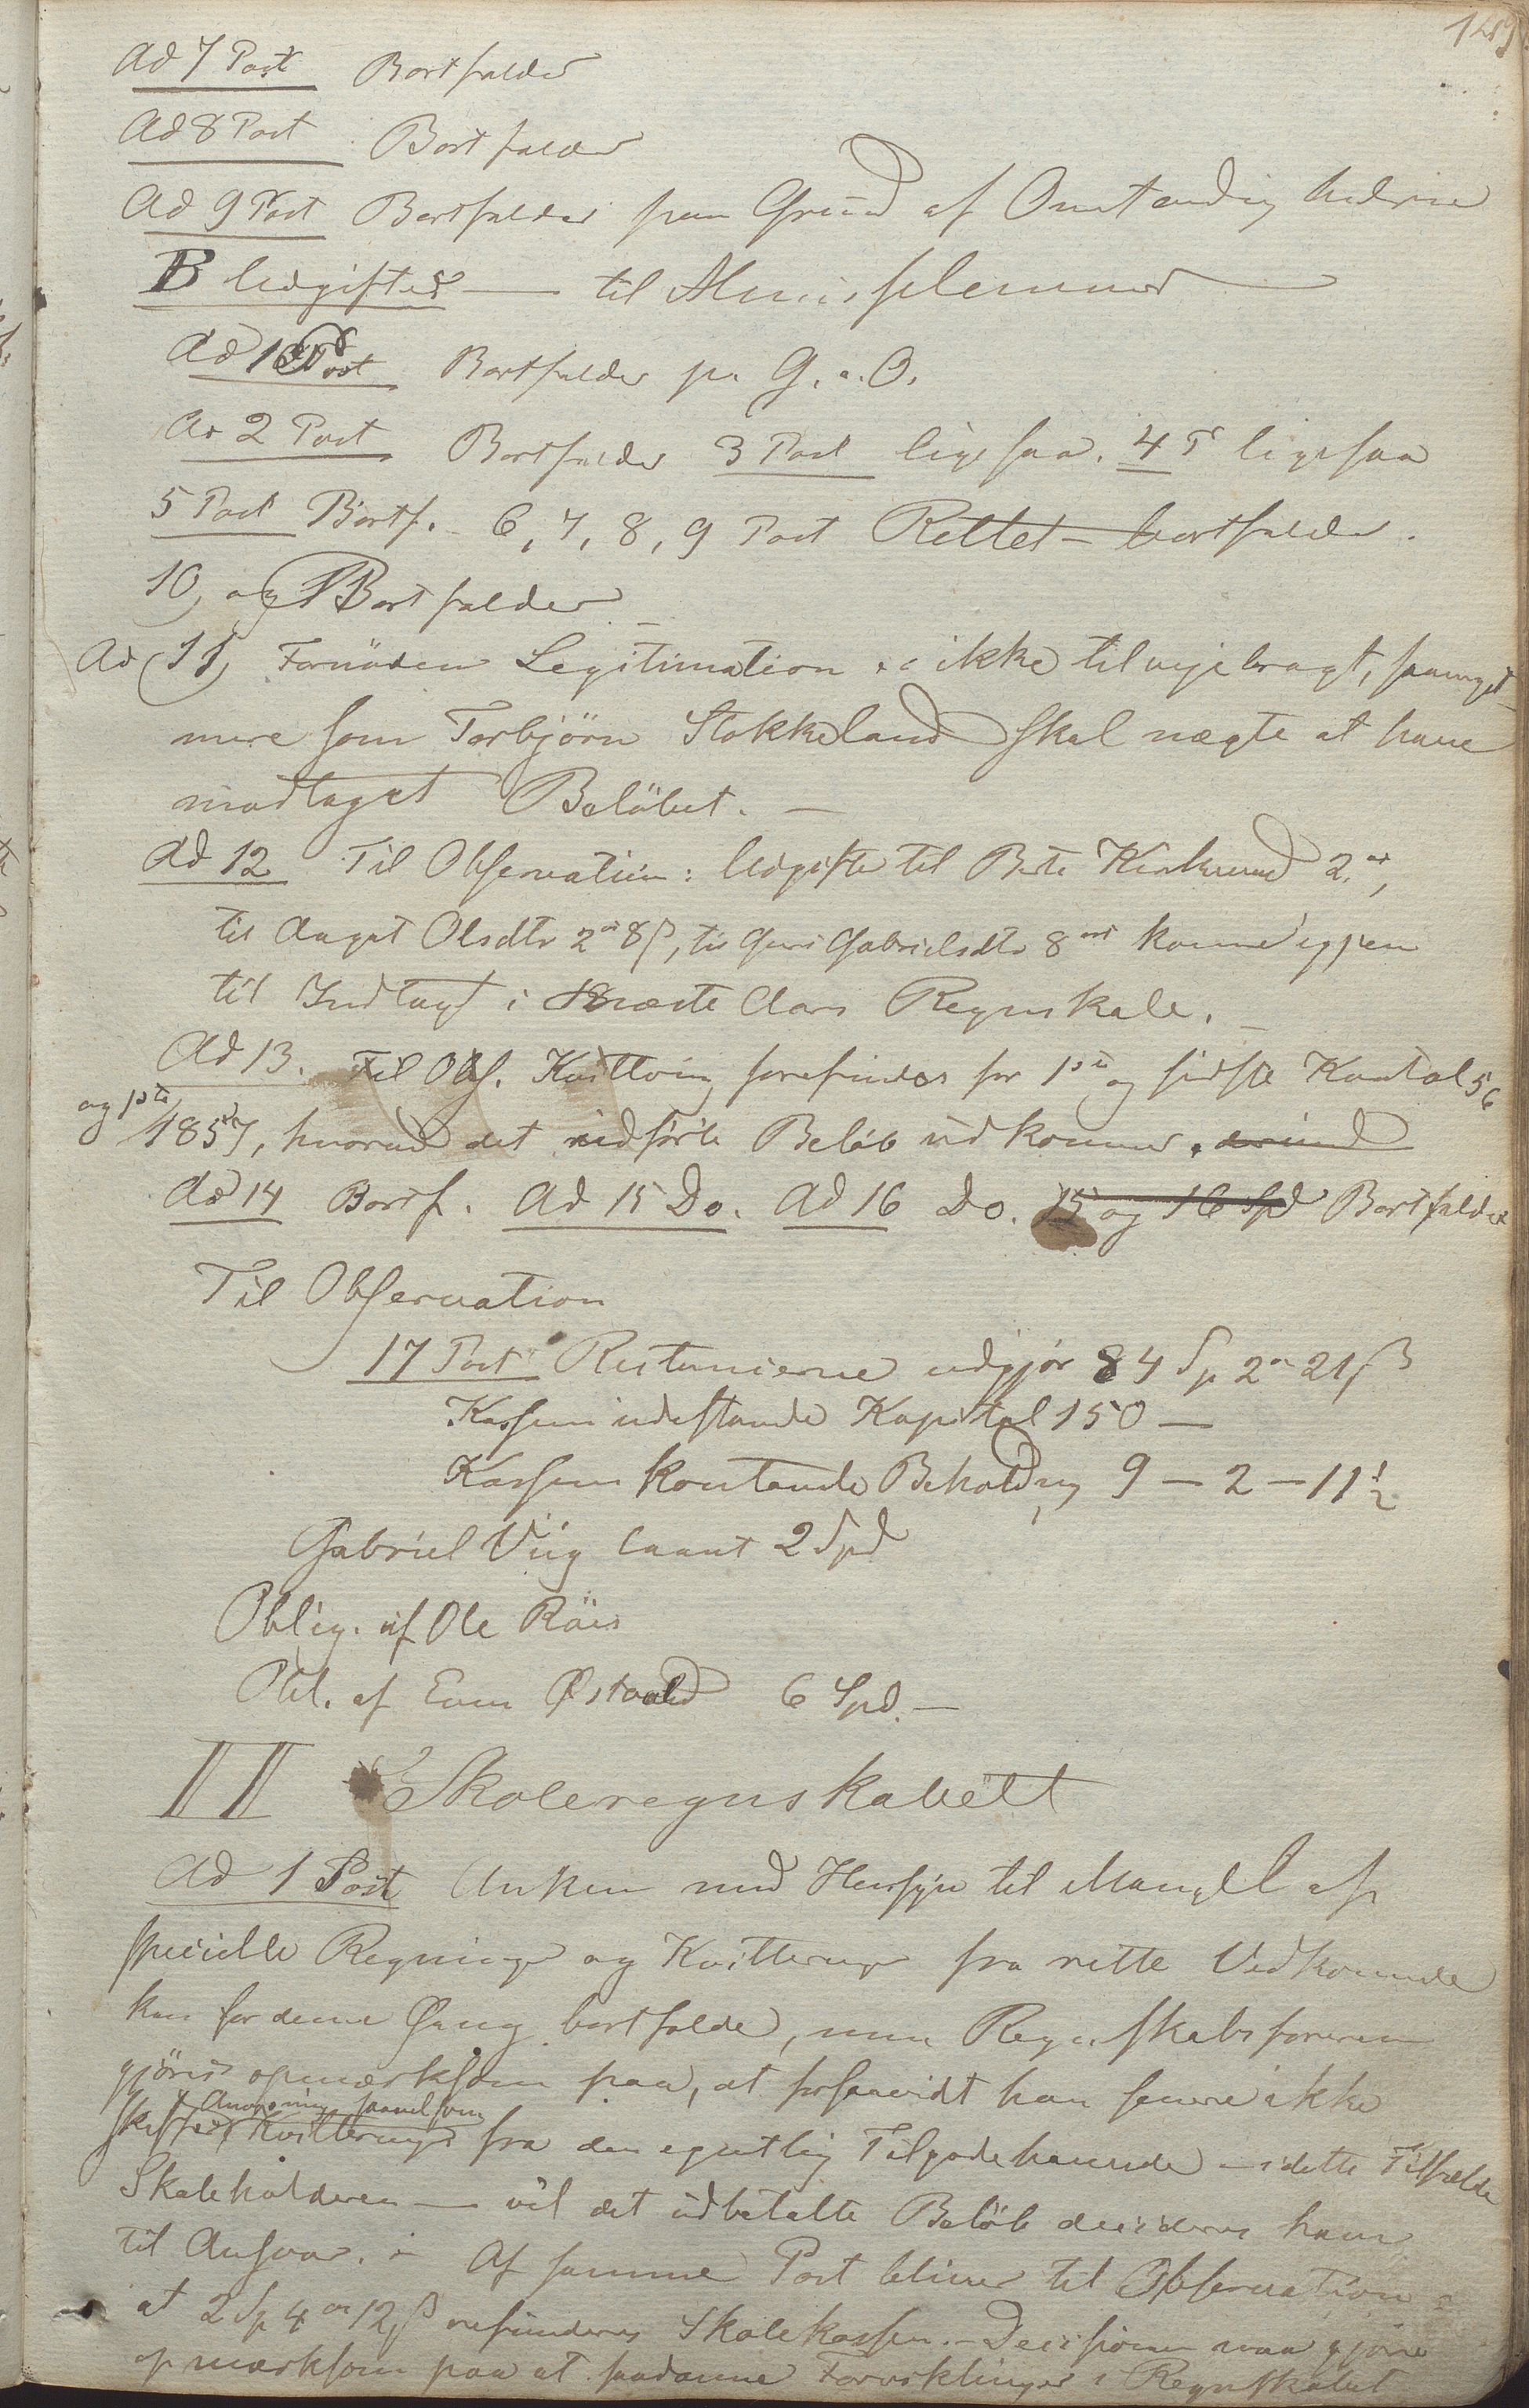 149
Ad 7 Post Bortfalder
Ad 8 Post Bortfalder
Ad 9 Post Bortfalder paa Grund af Omstændighederne
B Udgifter — til Almisselemmer —
Ad 1 Post Bortfalder p. G. a. O.
Ad 2 Post Bortfalder 3 Post ligesaa. 4 P ligesaa
5 Post Bortf. 6, 7, 8, 9 Post Rettet - bortfalder.
10, og Bortfalder. —
Ad 11, Fornöden Legitimation er ikke tilvejebragt, saameget
mere som Torbjörn Stokkeland skal nægte at have
modtaget Belöbet. —
Ad 12 Til Observation: Udgifter til Berte Kirkeeund 2 ort,
til Aagot Olsdtr 2 ort 8 ß, til Guri Gabrielsdtr 8 ort komme igjen
til Indtægt i næste Aars Regnskab. —
Ad 13. Til Obs. Kvittering forefindes for 1ste og sidste Kvartal 56
og 1ste 1857, hvorved det udförte Belöb udkommer.
Ad 14 Bortf. Ad 15 Do. Ad 16 Do. 15 og 16 Spd Bortfalder
Til Observation
17 Post Restancierne udgjör 84 Sp 2 ort 21 ß
Kassens udestaaende Kapital 150 —
Kassens kontante Beholdning 9 — 2 — 11 ½
Gabriel Viig laant 2 Spd
Oblig. af Ole Röis
Obl. af Even Østvold 6 Spd. —
II Skoleregnskabett
Ad 1 Post Anken med Hensyn til Mangel af
specielle Regninger og Kvitteringer fra rette Vedkommende
kan for denne Gang bortfalde, men Regnskabsföreren
gjöres opmærksom paa, at forsaavidt han senere ikke
Anvisning saavelsom
skaffer Kvitteringer fra den egentlig Tilgodehavende — i dette Tilfælde
Skoleholderen — vil det udbetalte Belöb decideres ham
til Ansvar. — Af samme Post bliver til Observation
at 2 Sp 4 ort 12 ß refunderes Skolekassen. — Decisionen maa gjöre
opmærksom paa at saadanne Forviklinger i Regnskabet